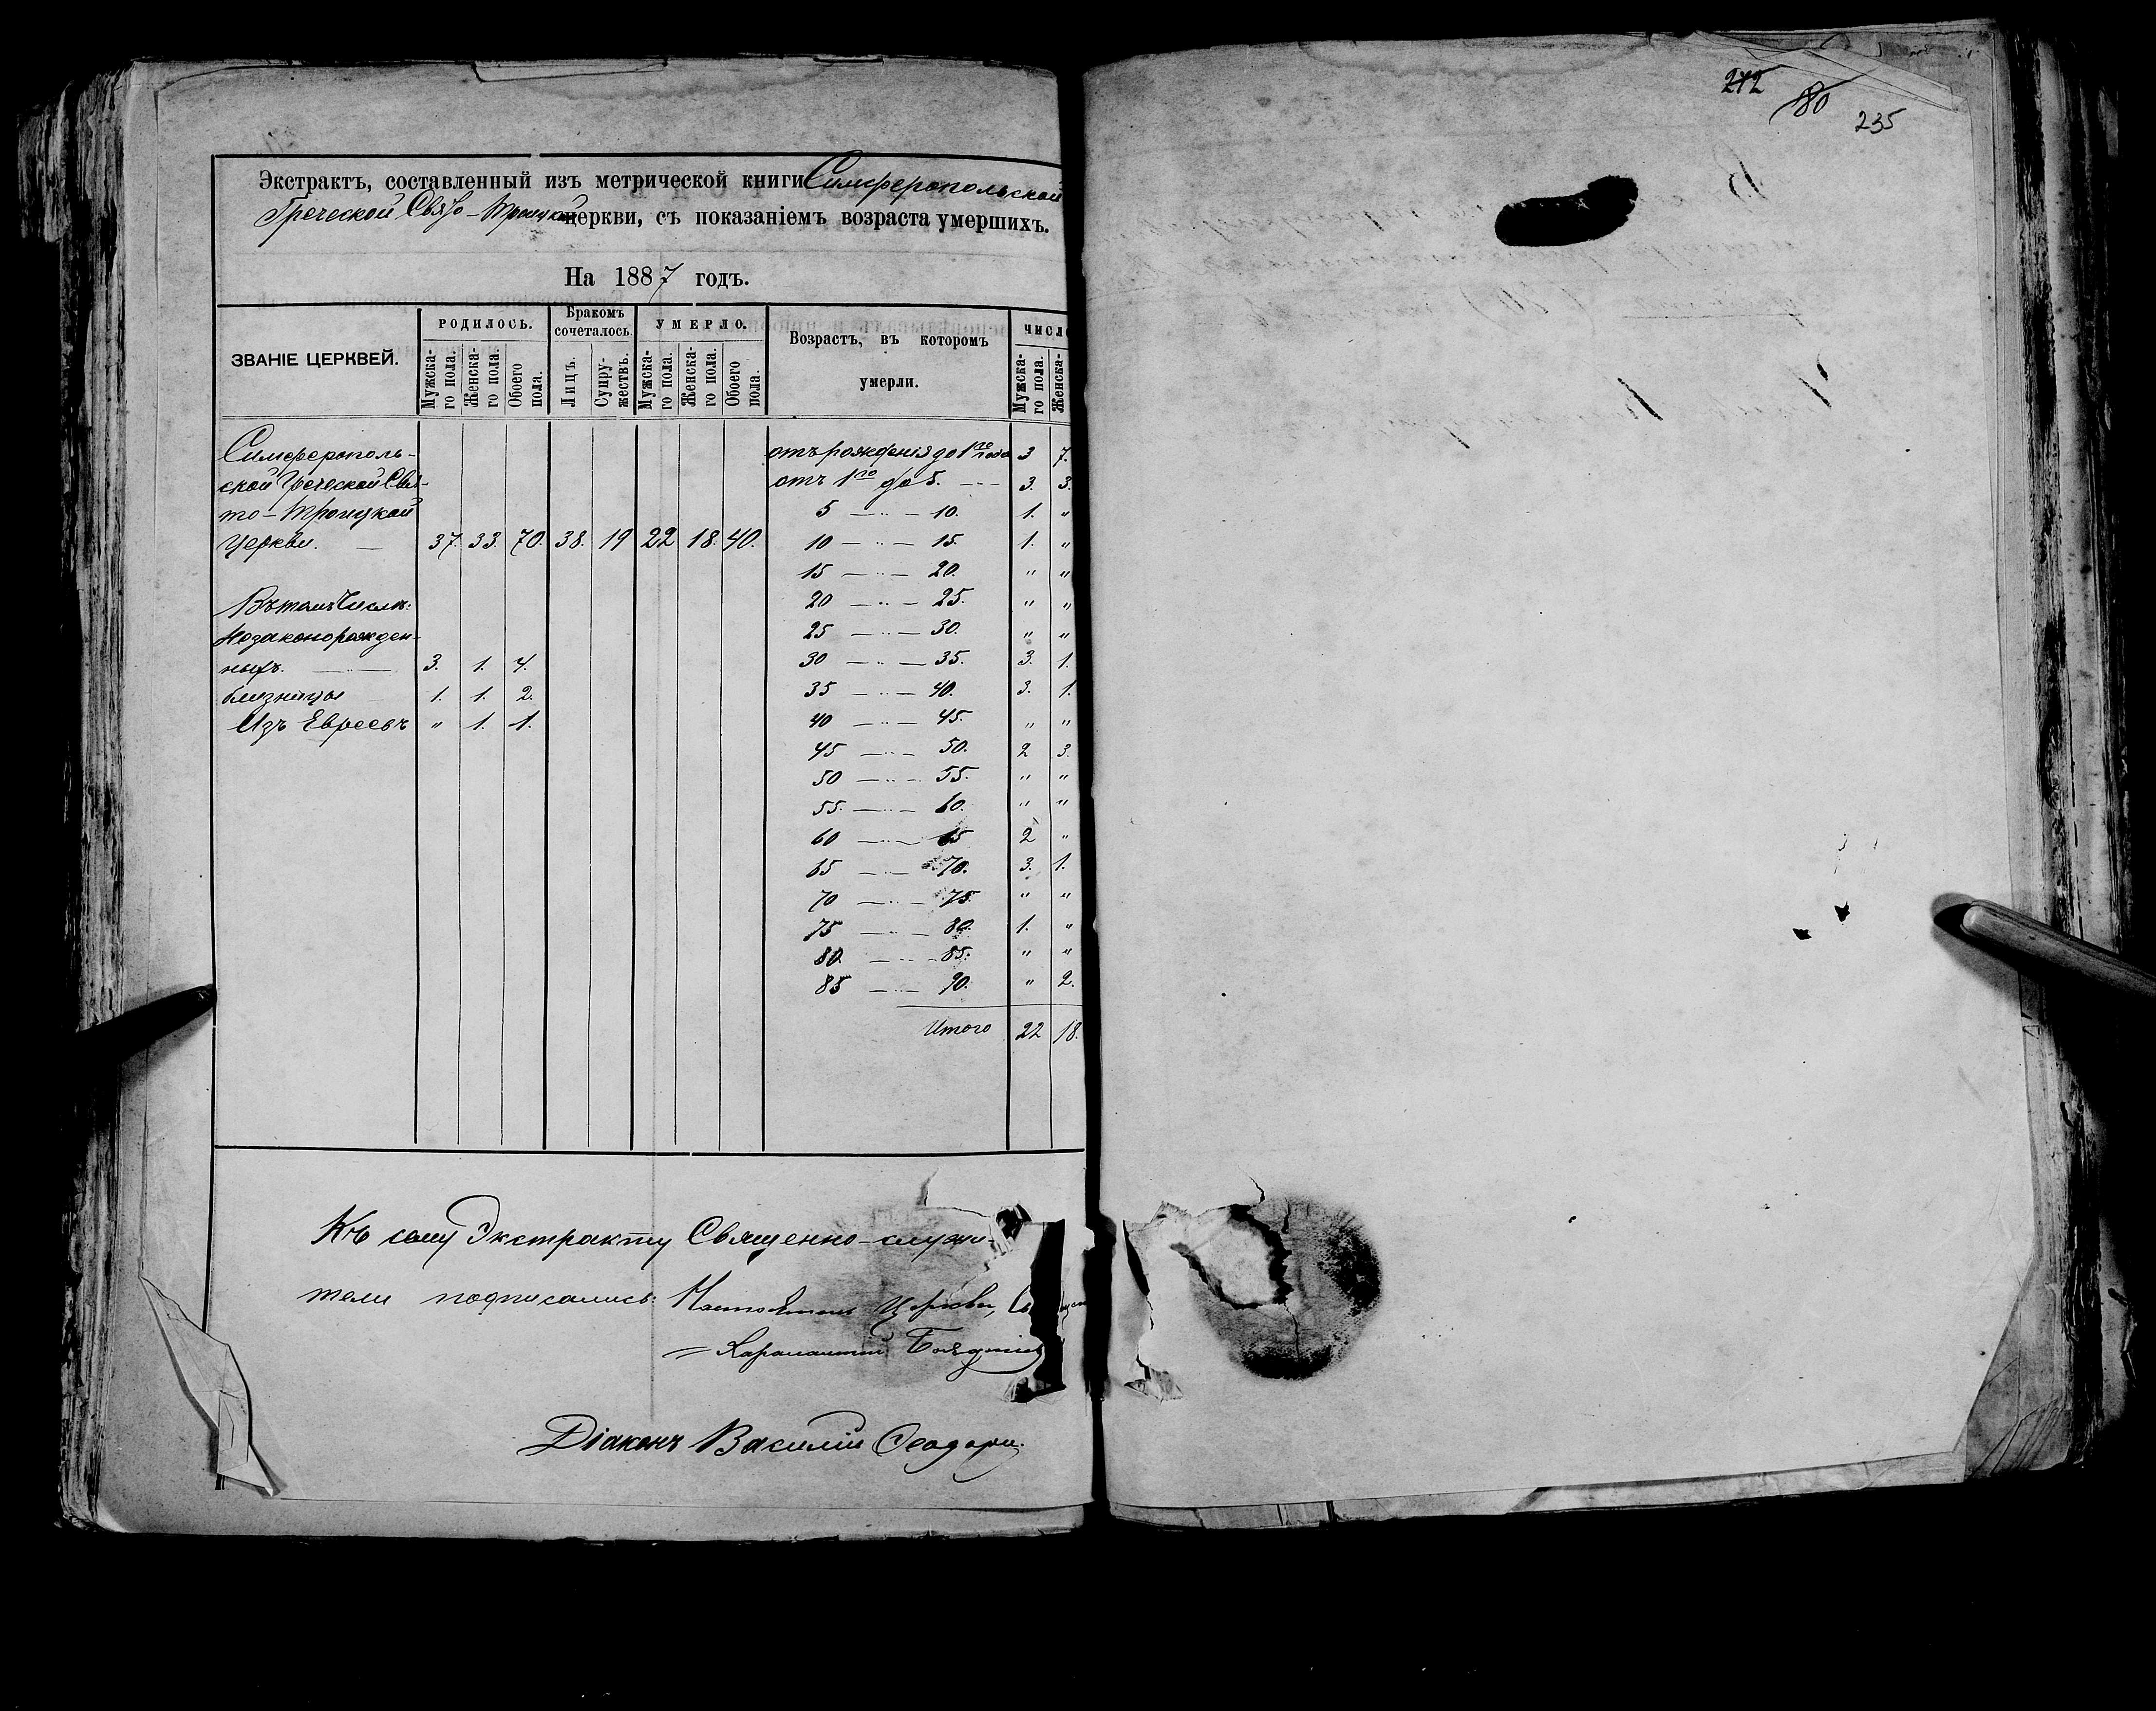 272
80
235
Экстрактъ, составленный изъ метрической книги Симферопольской
Греческой Свято-Троицкой церкви, съ показаніемъ возраста умершихъ.
На 1887 годъ.
ЗВАНІЕ ЦЕРКВЕЙ.
РОДИЛОСЬ.
Бракомъ сочеталось.
УМЕРЛО.
Возрастъ, въ которомъ
умерли.
ЧИСЛО
Мужска-го пола. Женска-го пола. Обоего пола. Лицъ. Супру-жествъ. Мужска-го пола. Женска-го пола. Обоего пола. Мужска-го пола. Женска-
Симферополь-
ской Греческой Свя-
то-Троицкой
Церкви. — 37. 33. 70. 38. 19 22 18. 40.
Въ томъ числѣ:
Незаконорожден-
ныхъ. — 3. 1. 4.
близнецы 1. 1. 2.
Изъ Евреевъ " 1. 1.
отъ рожденія до 1го года 3 7.
отъ 1го до 5. — 3. 3.
5 — " — 10. 1. "
10 — " — 15. 1. "
15 — " — 20. " "
20 — " — 25. " "
25 — " — 30. " "
30 — " — 35. 3. 1.
35 — " — 40. 3. 1.
40 — " — 45. " "
45 — " — 50. 2 3.
50 — " — 55. " "
55. — " — 60. " "
60 — " — 65 2 "
65 — " — 70. 3. 1.
70 — " — 75. " "
75 — " — 80. 1. "
80. — " — 85. " "
85 — " — 90. " 2.
Итого 22 18.
Къ сему Экстракту Священно-служи-
тели подписались: Настоятель Церкви,
Діаконъ Василій Ѳеодори.